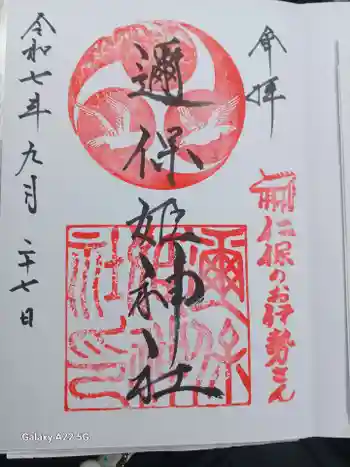 奉拝
仁保のお伊勢さん
邇保姫神社
令和七年九月二十七日
Galaxy A22 5G